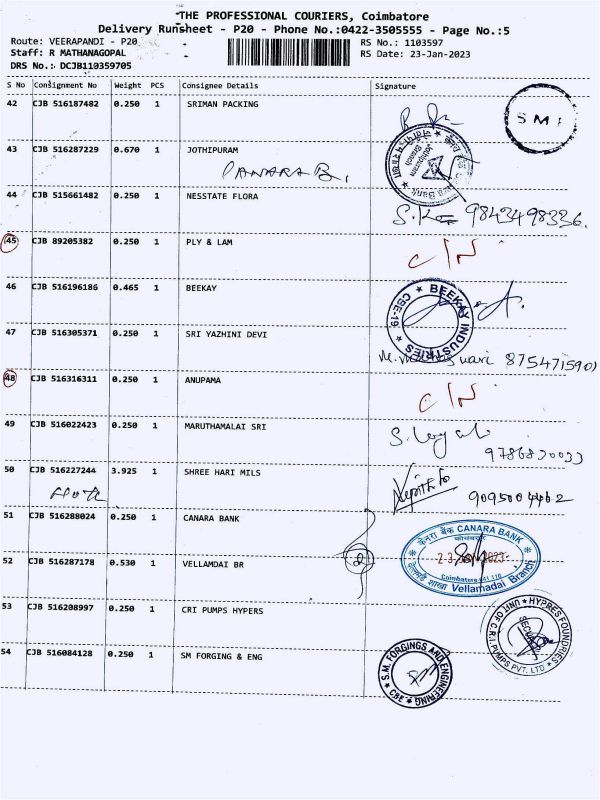 THE PROFESSIONAL COURIERS, Coimbatore
Delivery Runsheet - P20 - Phone No.:0422-3505555 - Page No.:5
Route: VEERAPANDI - P20
RS No.: 1103597
Staff: R MATHANAGOPAL
RS Date: 23-Jan-2023
DRS No.: DCJB110359705
S No Consignment No Weight PCS Consignee Details Signature
42 CJB 516187482 0.250 1 SRIMAN PACKING
S M F
43 CJB 516287229 0.670 1 JOTHIPURAM
CANARA B.
Jothipuram
Branch
44 CJB 515661482 0.250 1 NESSTATE FLORA
9843498336.
45 CJB 89205382 0.250 1 PLY & LAM
C/N
46 CJB 516196186 0.465 1 BEEKAY
★ BEEKAY INDUSTRIES ★ CBE-19
47 CJB 516305371 0.250 1 SRI YAZHINI DEVI
8754715901
48 CJB 516316311 0.250 1 ANUPAMA
C/N
49 CJB 516022423 0.250 1 MARUTHAMALAI SRI
9786830033
50 CJB 516227244 3.925 1 SHREE HARI MILS
9095004462
51 CJB 516288024 0.250 1 CANARA BANK
केनरा बैंक CANARA BANK
2
23 JAN 2023
52 CJB 516287178 0.530 1 VELLAMDAI BR
Coimbatore-641 110
Vellamadai Branch
53 CJB 516208997 0.250 1 CRI PUMPS HYPERS
HYPRES FOUNDRIES
UNIT OF C.R.I. PUMPS PVT. LTD
SECURITY
54 CJB 516084128 0.250 1 SM FORGING & ENG
S.M. FORGINGS AND ENGINEERING
CBE